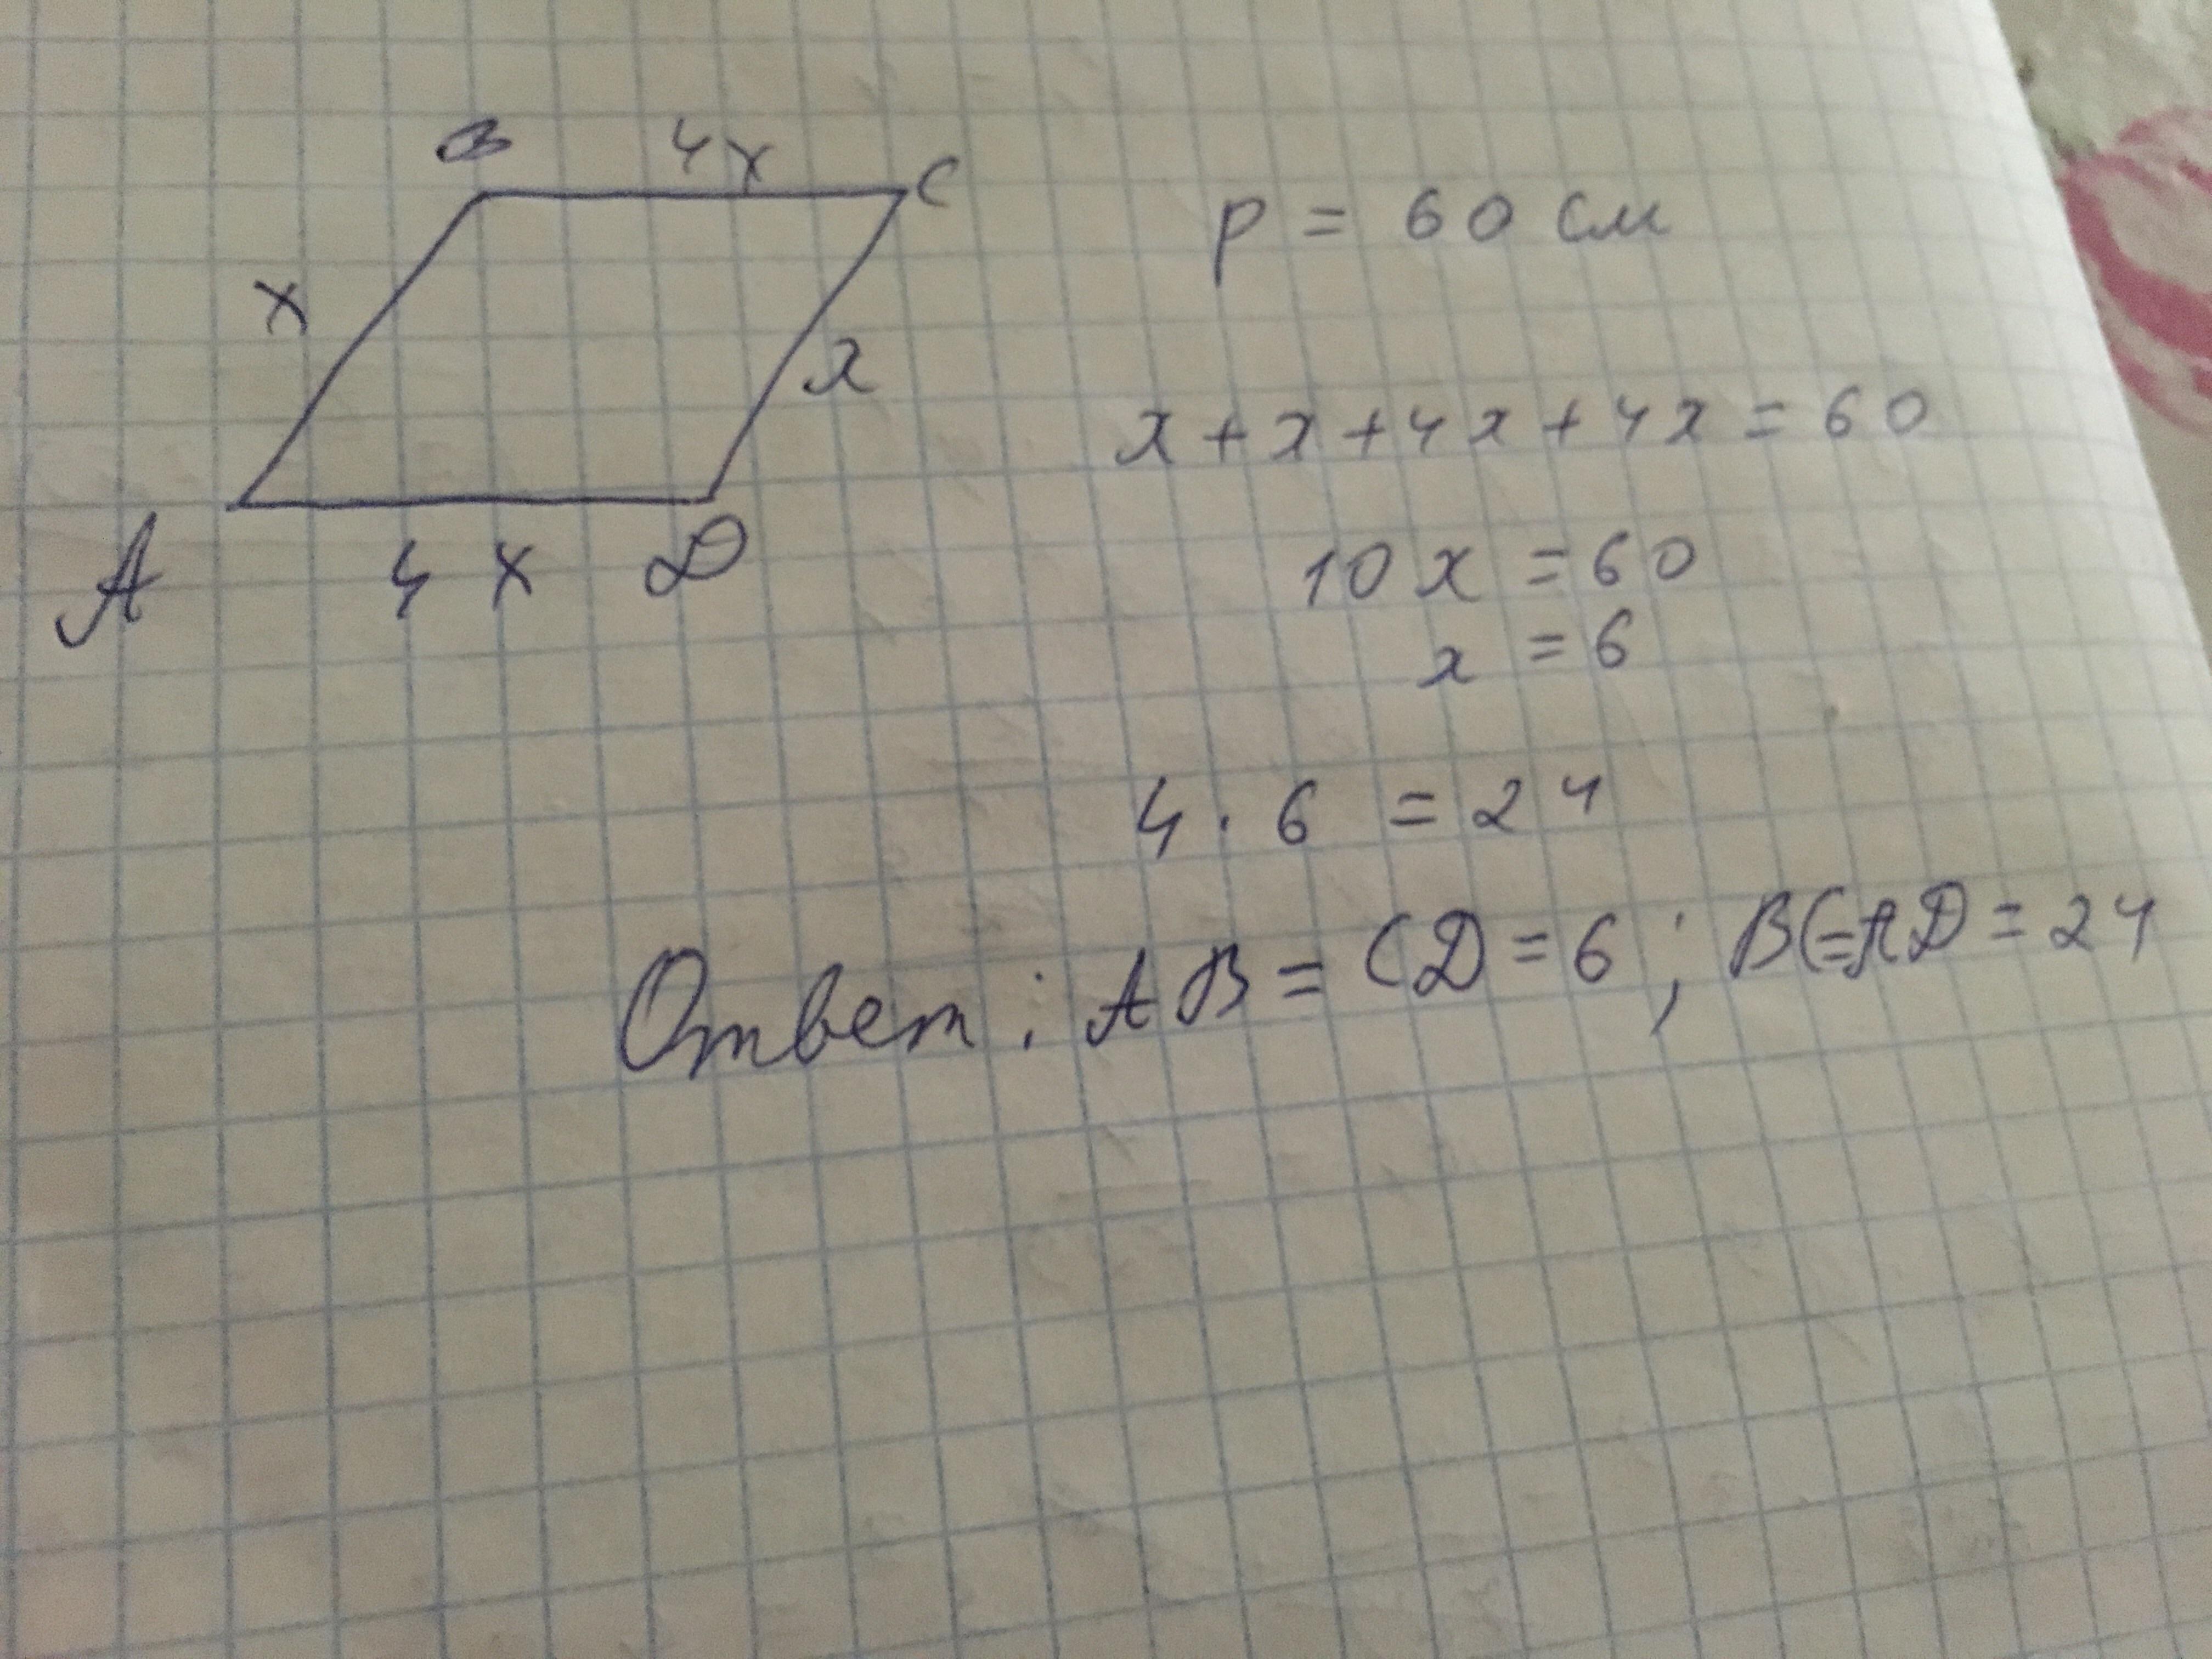 B 4x C
x
x
A 4x D
P = 60 см
x + x + 4x + 4x = 60
10x = 60
x = 6
4 · 6 = 24
Ответ: AB = CD = 6; BC = AD = 24